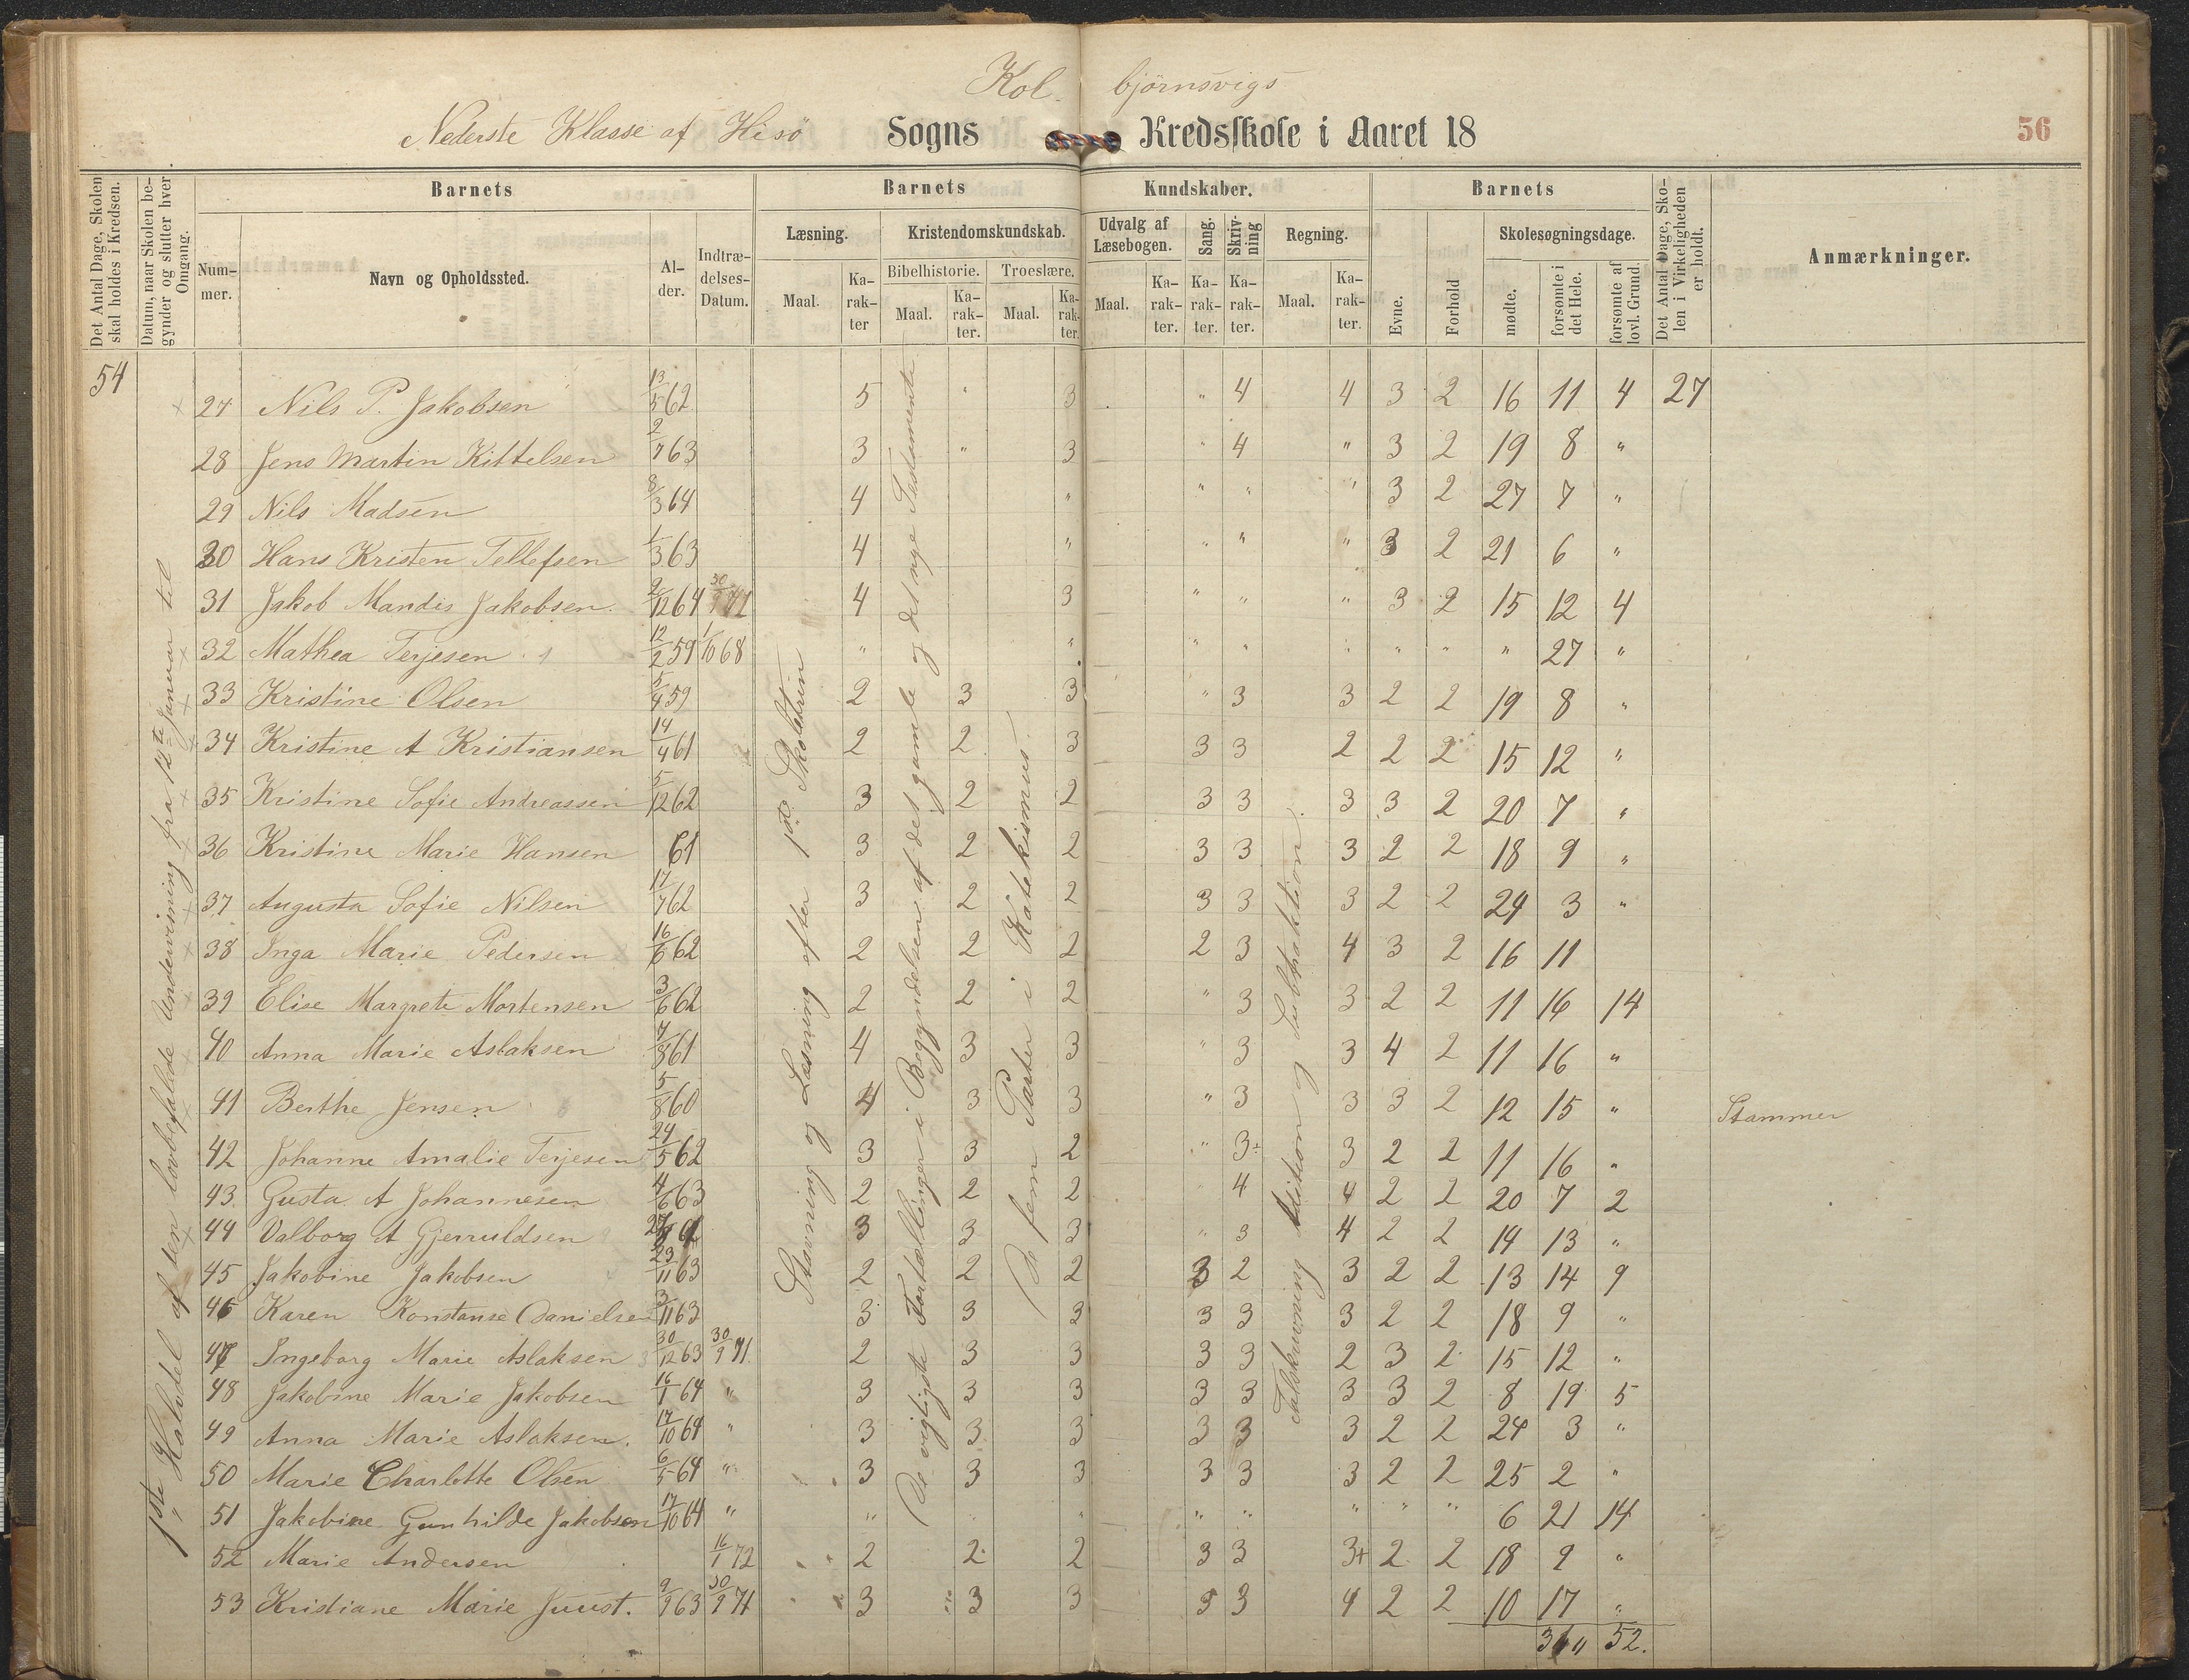 Kol- björnsvigs
Nederste Klasse af Hisö Sogns Kredsskole i Aaret 18
56
Det Antal Dage, Skolen skal holdes i Kredsen.
Datum, naar Skolen begynder og slutter hver Omgang.
Barnets Barnets Kundskaber. Barnets
Det Antal Dage, Skolen i Virkeligheden er holdt.
Anmærkninger.
Nummer. Navn og Opholdssted. Alder. Indtrædelses-Datum.
Læsning. Kristendomskundskab. Udvalg af Læsebogen. Sang. Skrivning Regning. Evne. Forhold Skolesøgningsdage.
Bibelhistorie. Troeslære.
Maal. Karakter Maal. Karakter. Maal. Karakter. Maal. Karakter. Karakter. Karakter. Maal. Karakter. mødte. forsømte i det Hele. forsømte af lovl. Grund.
54
1ste Halvdel af den lovbefalede Undervisning fra 12te Januar til
Stavning og Læsning efter 1ste Skoletrin
De vigtigste Fortællinger i Begyndelsen af det gamle og det nye Testamente
De fem Parter i Katekismus.
Talskrivning Adition og Subtraktion.
27 Nils P. Jakobsen 13/5 62 5 " 3 " 4 4 3 2 16 11 4 27
28 Jens Martin Kittelsen 2/7 63 3 " 3 " 4 " 3 2 19 8 "
29 Nils Madsen 8/3 64 4 " " " " 3 2 27 7 "
30 Hans Kristen Tellefsen 1/3 63 4 " " " " 3 2 21 6 "
31 Jakob Mandis Jakobsen. 2/12 64 30/9 71 4 3 " " " 3 2 15 12 4
32 Mathea Terjesen 12/2 59 1/10 68 " " " " " " " " 27 "
33 Kristine Olsen 5/4 59 2 3 3 " 3 3 2 2 19 8 "
34 Kristine A Kristiansen 14/4 61 2 2 3 3 3 2 2 2 15 12 "
35 Kristine Sofie Andreassen 5/12 62 3 2 2 3 3 3 3 2 20 7 "
36 Kristine Marie Hansen 61 3 2 2 3 3 3 2 2 18 9 "
37 Augusta Sofie Nilsen 17/7 62 3 2 2 3 3 3 2 2 24 3 "
38 Inga Marie Pedersen 16/6 62 2 2 2 2 3 4 3 2 16 11
39 Elise Margrete Mortensen 3/6 62 2 2 2 " 3 3 2 2 11 16 14
40 Anna Marie Aslaksen 4/8 61 4 3 3 " 3 3 4 2 11 16 "
41 Berthe Jensen 5/8 60 4 3 3 " 3 3 3 2 12 15 " Stammer
42 Johanne Amalie Terjesen 24/5 62 3 3 2 " 3÷ 3 2 2 11 16 "
43. Gusta A Johannesen 4/6 63 2 2 2 4 4 2 2 20 7 2
44 Valborg A Gjeruldsen 3 3 3 " 3 4 2 2 14 13 "
45 Jakobine Jakobsen 23/11 63 2 2 2 3 2 3 2 2 13 14 9
46 Karen Konstanse Danielsen 3/11 63 3 3 3 3 3 3 2 2 18 9 "
47 Ingeborg Marie Aslaksen 30/12 63 30/9 71. 2 3 3 3 3 2 3 2 15 12 "
48 Jakobine Marie Jakobsen 16/1 64 " 3 3 3 3 3 3 3 2 8 19 5
49 Anna Marie Aslaksen. 17/10 64 " 3 3 3 3 3 3 2 2 24 3 "
50 Marie Charlotte Olsen 6/5 64 " 3 3 3 3 3 3 2 2 25 2 "
51 Jakobine Gunhilde Jakobsen 17/10 64 " " " " " " " " 6 21 14
52 Marie Andersen 16/1 72 2 2 2 3 3 3+ 2 2 18 9 "
53 Kristiane Marie Juust. 9/9 63 30/9 71 3 3 3 3 3 4 2 2 10 17 "
52.